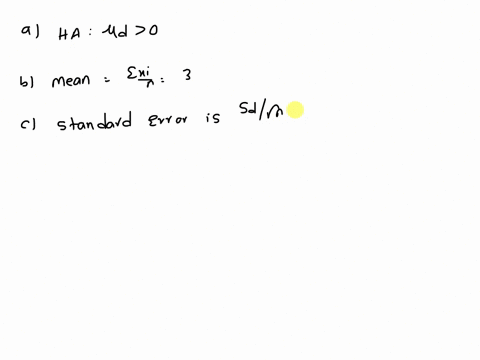 a) HA : μd > 0
b) mean = Σxi/n = 3
c) standard Error is Sd/√n